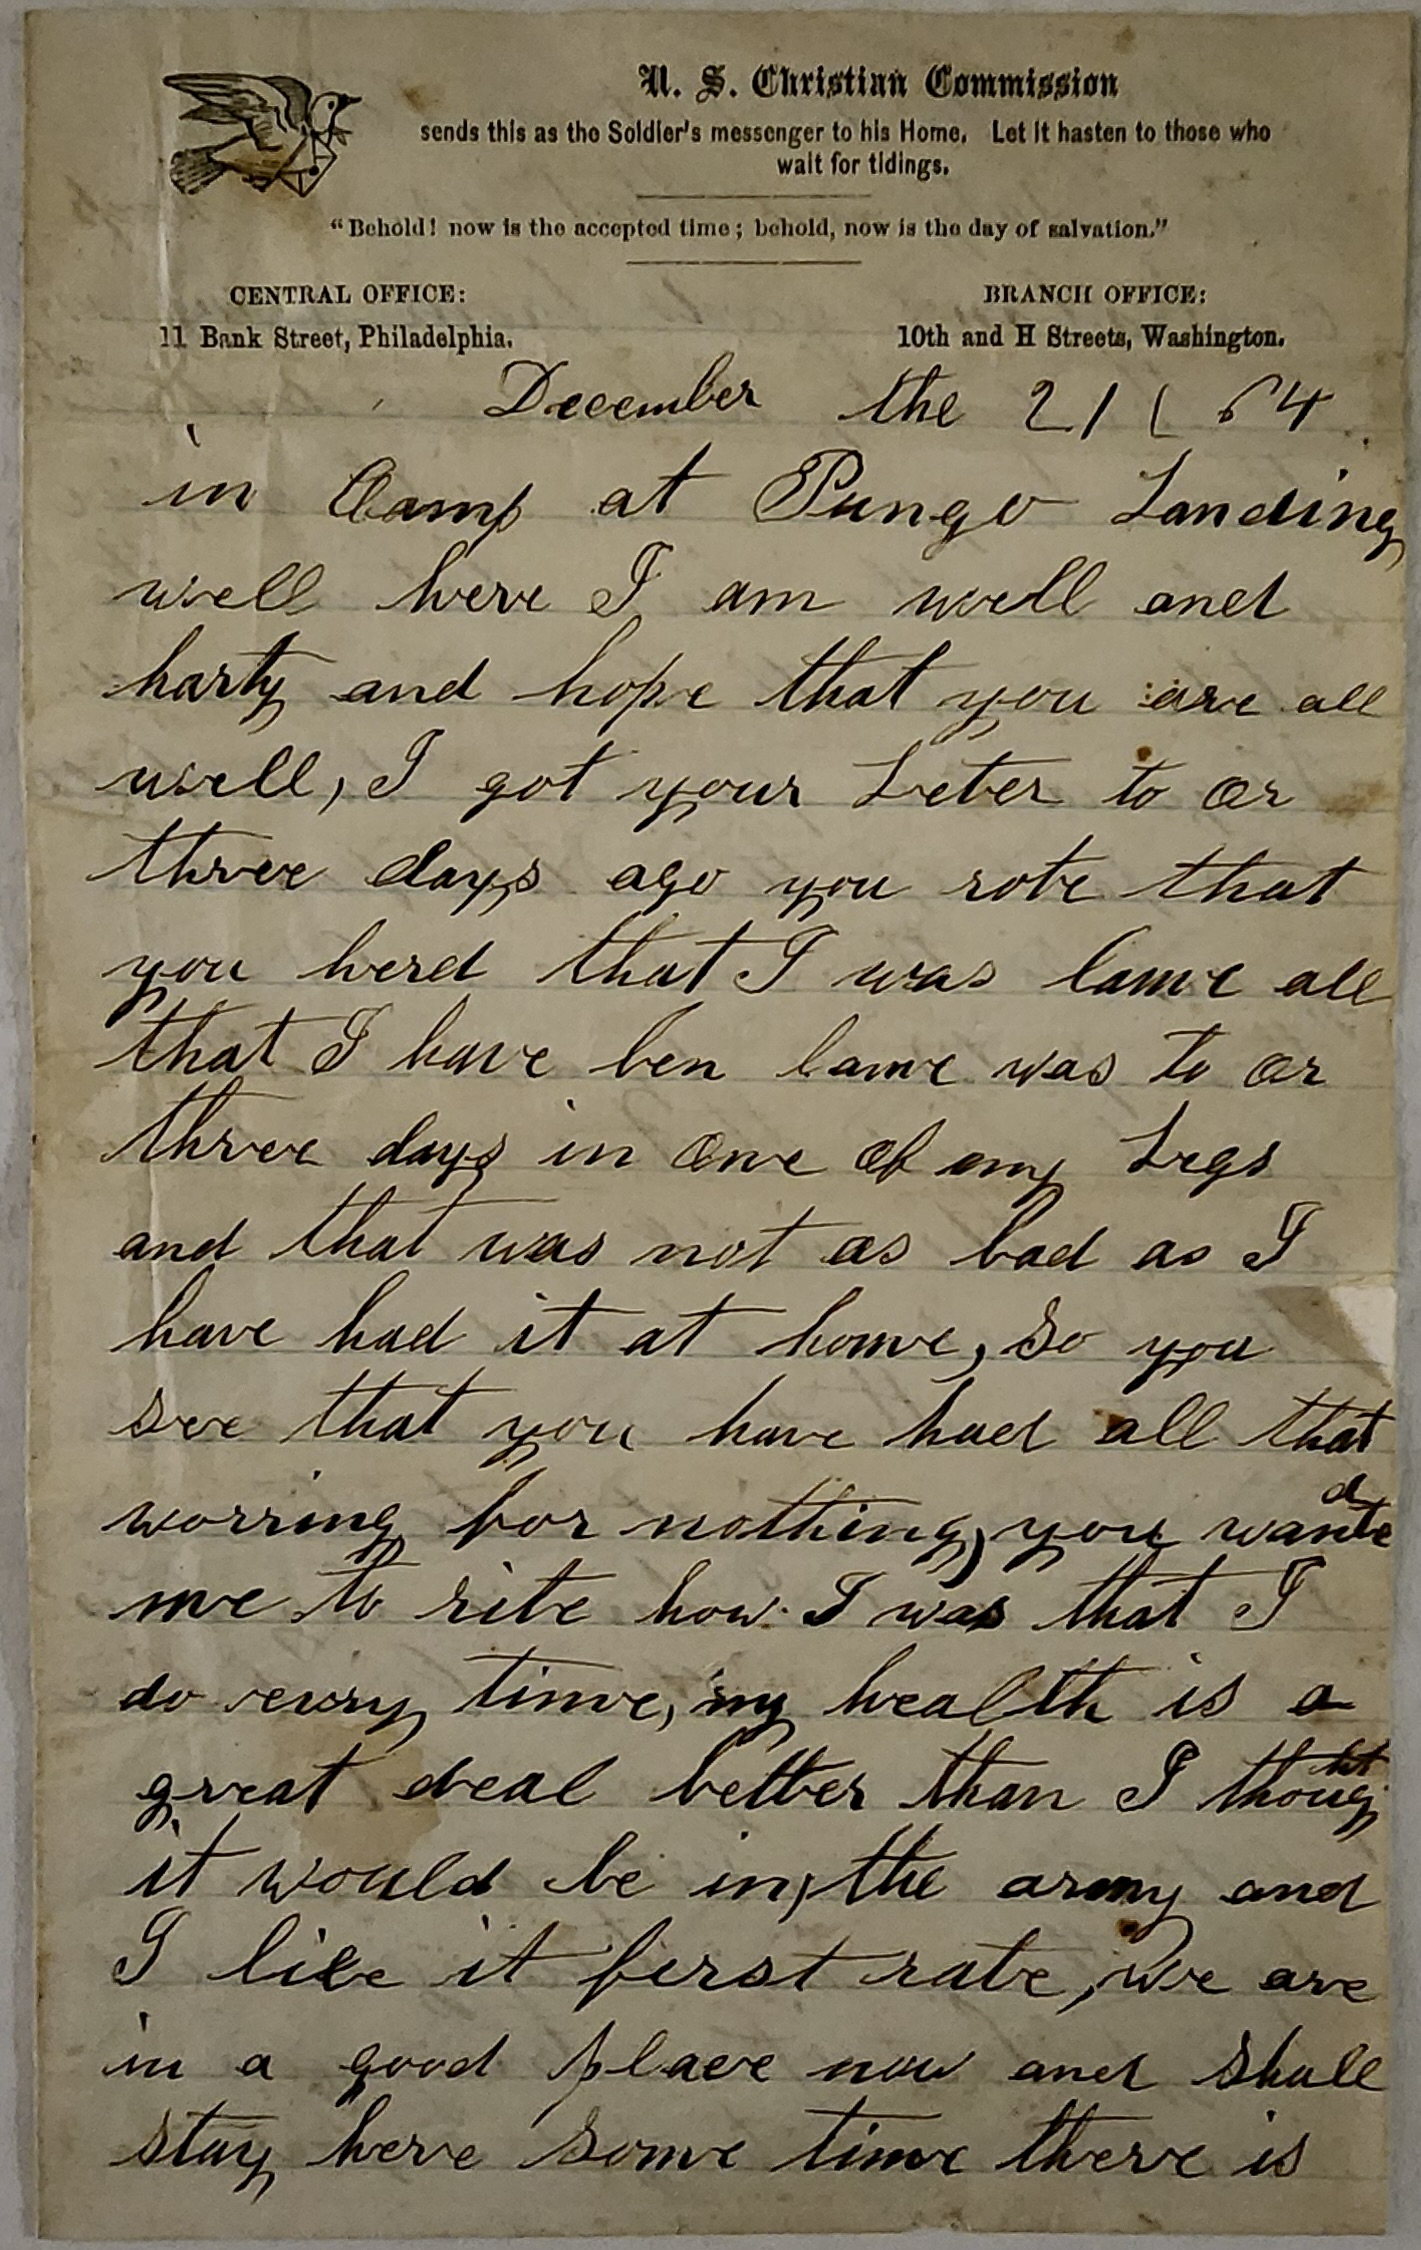 U. S. Christian Commission
sends this as the Soldier's messenger to his Home. Let it hasten to those who
wait for tidings.
"Behold! now is the accepted time; behold, now is the day of salvation."
CENTRAL OFFICE:
11 Bank Street, Philadelphia.
BRANCH OFFICE:
10th and H Streets, Washington.
December the 21 64
in Camp at Pungo Landing
well here I am well and
harty and hope that you are all
well, I got your Leter to or
three days ago you rote that
you herd that I was lame all
that I have ben lame was to or
three days in one of my Legs
and that was not as bad as I
have had it at home, so you
see that you have had all that
worring for nothing, you wanted
me to rite how I was that I
do every time, my health is a
great deal better than I thought
it would be in, the army and
I like it ferst rate, we are
in a good place now and shall
stay here some time there is